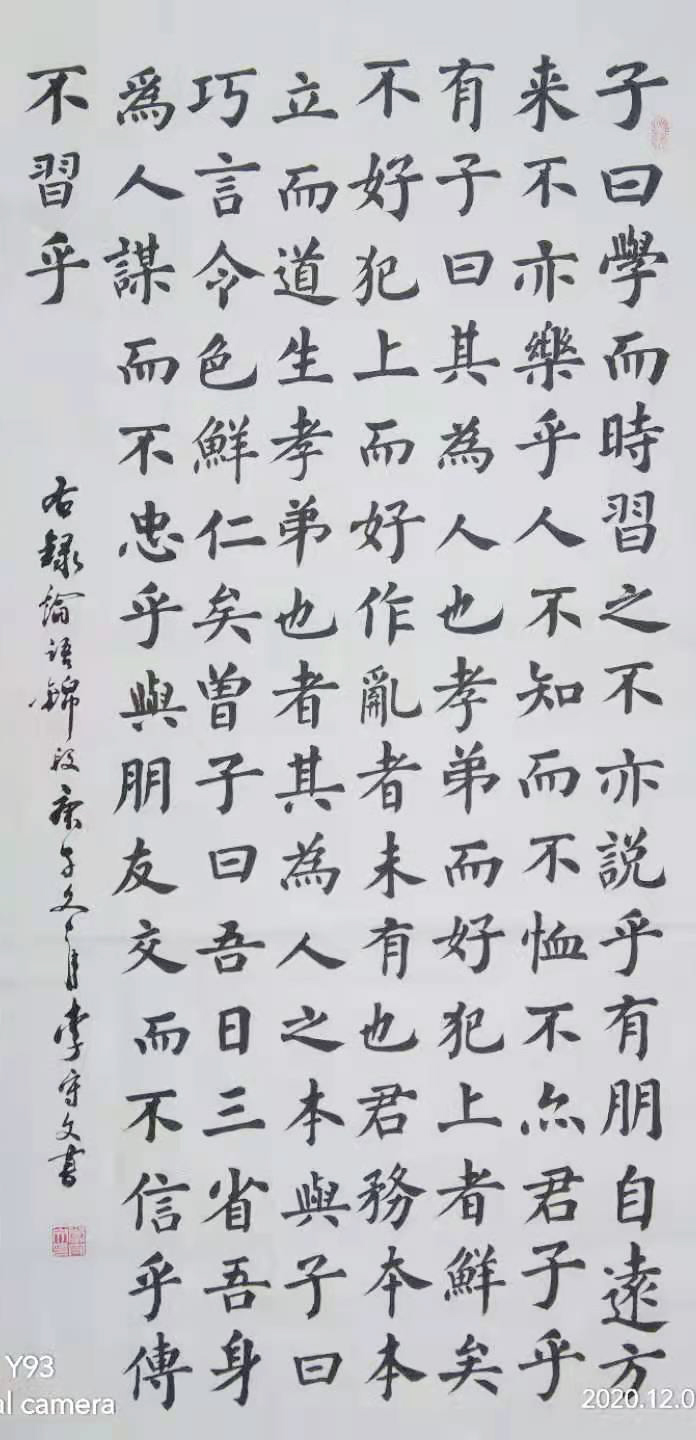 子曰學而時習之不亦說乎有朋自遠方
来不亦樂乎人不知而不恤不亦君子乎
有子曰其為人也孝弟而好犯上者鮮矣
不好犯上而好作亂者未有也君務本本
立而道生孝弟也者其為人之本與子曰
巧言令色鮮仁矣曾子曰吾日三省吾身
爲人謀而不忠乎與朋友交而不信乎傳
不習乎
右録論语錦段庚子冬月李守文書
Y93
al camera
2020.12.0